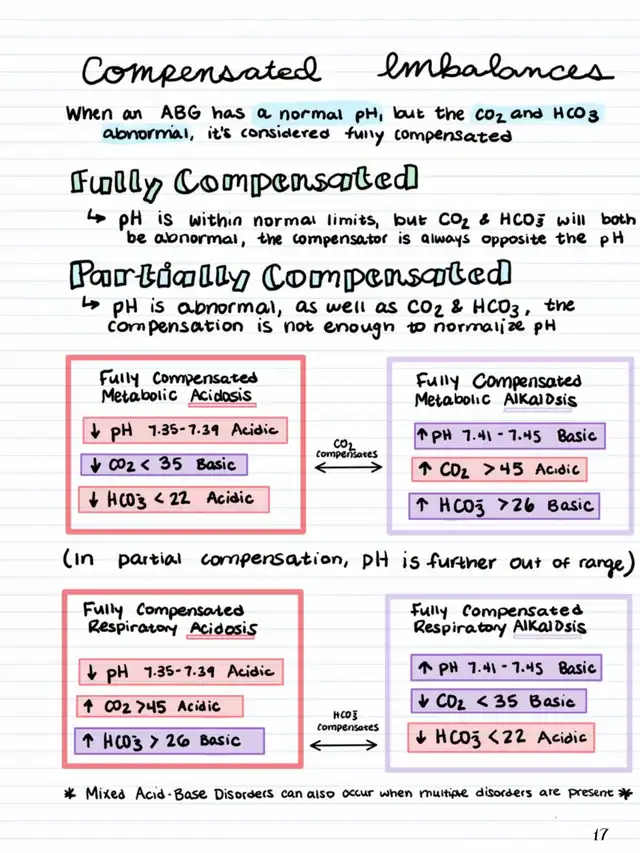 Compensated Imbalances
When an ABG has a normal pH, but the CO₂ and HCO₃
abnormal, it's considered fully compensated
Fully Compensated
↳ pH is within normal limits, but CO₂ & HCO₃⁻ will both
be abnormal, the compensator is always opposite the pH
Partially Compensated
↳ pH is abnormal, as well as CO₂ & HCO₃, the
compensation is not enough to normalize pH
Fully Compensated
Metabolic Acidosis
↓ pH 7.35-7.39 Acidic
↓ CO₂ < 35 Basic
↓ HCO₃⁻ < 22 Acidic
CO₂
compensates
Fully Compensated
Metabolic Alkalosis
↑ pH 7.41-7.45 Basic
↑ CO₂ >45 Acidic
↑ HCO₃⁻ >26 Basic
(In partial compensation, pH is further out of range)
Fully Compensated
Respiratory Acidosis
↓ pH 7.35-7.39 Acidic
↑ CO₂ >45 Acidic
↑ HCO₃⁻ > 26 Basic
HCO₃⁻
compensates
Fully Compensated
Respiratory Alkalosis
↑ pH 7.41-7.45 Basic
↓ CO₂ < 35 Basic
↓ HCO₃⁻ <22 Acidic
* Mixed Acid-Base Disorders can also occur when multiple disorders are present *
17